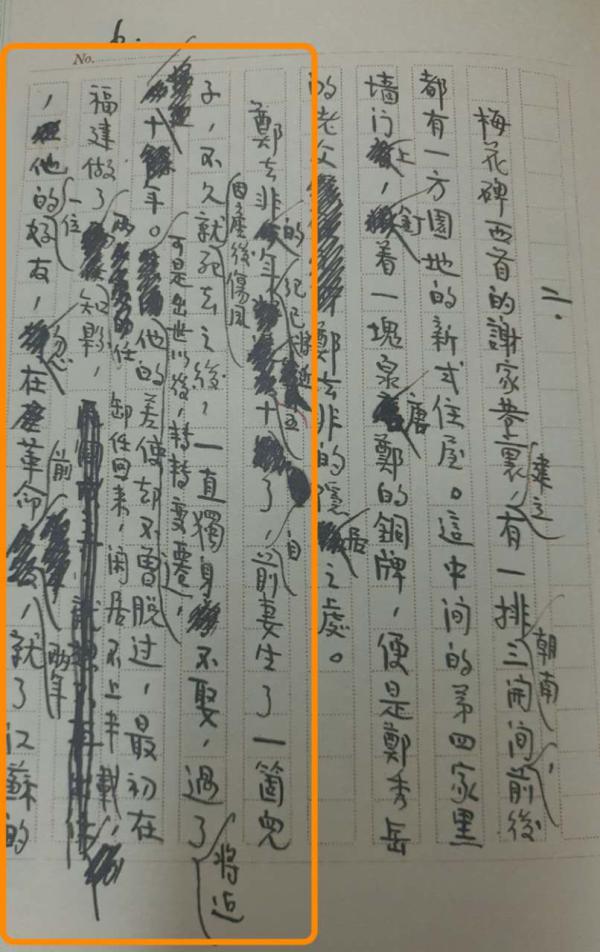 No.
二.
梅花碑西首的謝家巷裏，建立有一排朝南三開间前後
都有一方園地的新式住屋。這中间的第四家黑
墙门上，釘着一塊泉唐鄭的銅牌，便是鄭秀岳
的老父鄭去非的隱居之處。
鄭去非的年紀已將近五十了，自前妻生了一箇兒
子，不久就因產後傷風死去之後，一直獨身不娶，過了將近
十年。可是出世以後，轉轉變遷，他的差使却不曾脱过，最初在
福建做了兩任知縣，卸任回来，闲居不上半載，
，他的一位好友，忽而在革命前兩年，就了江蘇的